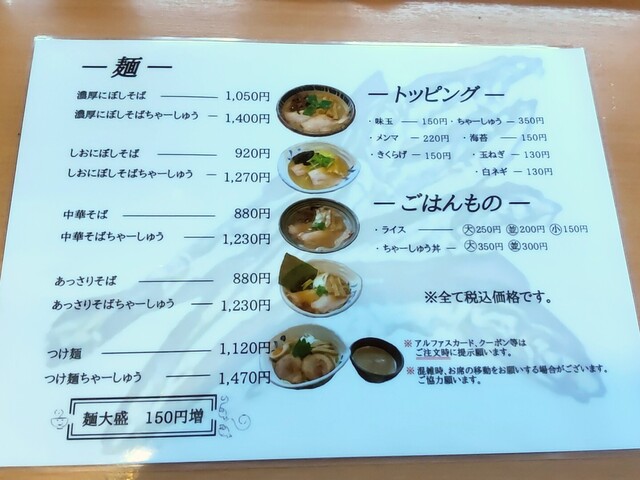 — 麺 —
濃厚にぼしそば ―― 1,050円
濃厚にぼしそばちゃーしゅう ― 1,400円
しおにぼしそば ―― 920円
しおにぼしそばちゃーしゅう ― 1,270円
中華そば ―― 880円
中華そばちゃーしゅう ―― 1,230円
あっさりそば ―― 880円
あっさりそばちゃーしゅう ―― 1,230円
つけ麺 ―― 1,120円
つけ麺ちゃーしゅう ―― 1,470円
麺大盛 150円増
— トッピング —
・味玉 ―― 150円・ちゃーしゅう ― 350円
・メンマ ― 220円 ・海苔 ―― 150円
・きくらげ ― 150円 ・玉ねぎ ― 130円
・白ネギ ― 130円
— ごはんもの —
・ライス ―― 大250円 並200円 小150円
・ちゃーしゅう丼 ― 大350円 並300円
※全て税込価格です。
※ アルファスカード、クーポン等は
ご注文時に提示願います。
※ 混雑時、お席の移動をお願いする場合がございます。
ご協力願います。